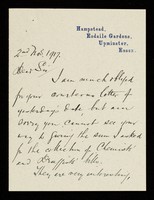 Hampstead,
Rodells Gardens,
Upminster,
Essex.
2nd Nov. 1917.
Dear Sir
I am much obliged
for your courteous letter of
yesterday's date but am
sorry you cannot see your
way to giving the sum I asked
for the collection of Chemists'
and Druggists' Bills.
They are very interesting,